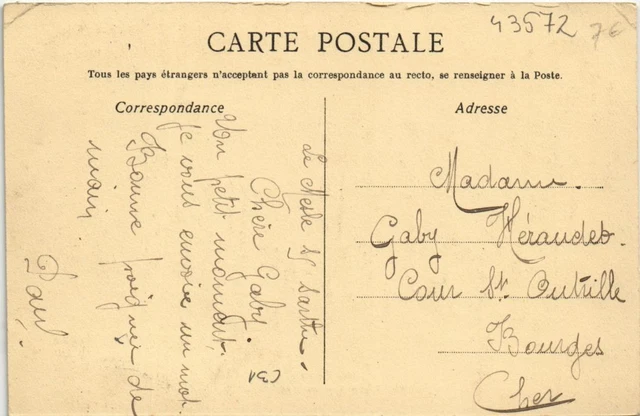 43572 76
CARTE POSTALE
Tous les pays étrangers n'acceptent pas la correspondance au recto, se renseigner à la Poste.
Correspondance
Adresse
Le Mesle s/ Sarthe.
Chère Gaby.
Un petit moment,
je vous envoie un mot.
Bonne poignée de
main.
Paul.
Madame.
Gaby Héraudet.
Cour St. Outrille
Bourges
Cher